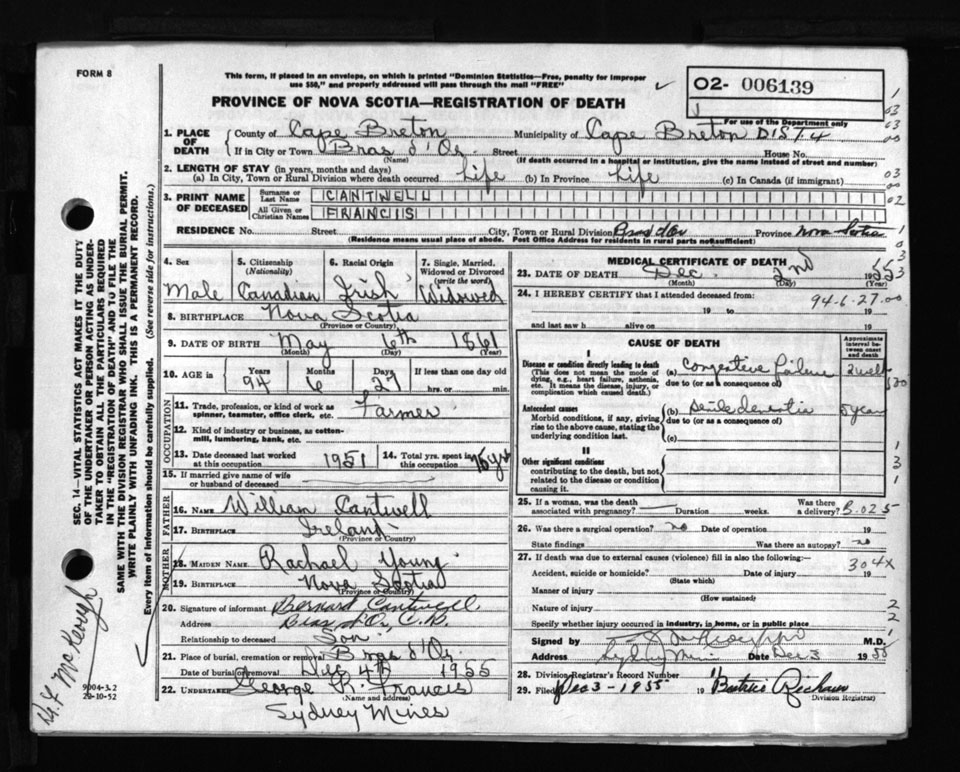 FORM 8
This form, if placed in an envelope, on which is printed "Dominion Statistics—Free, penalty for improper
use $50," and properly addressed will pass through the mail "FREE"
02- 006139
For use of the Department only
PROVINCE OF NOVA SCOTIA—REGISTRATION OF DEATH
1. PLACE OF DEATH
County of Cape Breton Municipality of Cape Breton DIST.4
If in City or Town Bras d'Or Street House No.
(Name) (If death occurred in a hospital or institution, give the name instead of street and number)
2. LENGTH OF STAY (in years, months and days)
(a) In City, Town or Rural Division where death occurred Life (b) In Province Life (c) In Canada (if immigrant)
3. PRINT NAME OF DECEASED
Surname or Last Name CANTWELL
All Given or Christian Names FRANCIS
RESIDENCE No. Street City, Town or Rural Division Bras d'Or Province Nova Scotia
(Residence means usual place of abode. Post Office Address for residents in rural parts not sufficient)
4. Sex Male
5. Citizenship (Nationality) Canadian
6. Racial Origin Irish
7. Single, Married, Widowed or Divorced (write the word) Widowed
8. BIRTHPLACE Nova Scotia
(Province or Country)
9. DATE OF BIRTH May 6th 1861
(Month) (Day) (Year)
10. AGE in Years 94 Months 6 Days 27 If less than one day hrs. or min.
OCCUPATION
11. Trade, profession, or kind of work as spinner, teamster, office clerk, etc. Farmer
12. Kind of industry or business, as cotton-mill, lumbering, bank, etc.
13. Date deceased last worked at this occupation 1951
14. Total yrs. spent in this occupation 75 yrs
15. If married give name of wife or husband of deceased
FATHER
16. NAME William Cantwell
17. BIRTHPLACE Ireland
(Province or Country)
MOTHER
18. MAIDEN NAME Rachael Young
19. BIRTHPLACE Nova Scotia
(Province or Country)
20. Signature of informant Bernard Cantwell
Address Bras d'Or C.B.
Relationship to deceased Son
21. Place of burial, cremation or removal Bras d'Or
Date of burial or removal Dec 4th 1955
22. UNDERTAKER George H. Francis
(Name and address)
Sydney Mines
MEDICAL CERTIFICATE OF DEATH
23. DATE OF DEATH Dec. 2nd 1955
(Month) (Day) (Year)
24. I HEREBY CERTIFY that I attended deceased from:
94-6-27-00
19 to 19
and last saw h alive on 19
CAUSE OF DEATH
Approximate interval between onset and death
I
Disease or condition directly leading to death
(This does not mean the mode of dying, e.g., heart failure, asthenia, etc. It means the disease, injury, or complication which caused death.)
(a) Congestive Failure 2 week
due to (or as a consequence of)
Antecedent causes
Morbid conditions, if any, giving rise to the above cause, stating the underlying condition last.
(b) Senile dementia 5 years
due to (or as a consequence of)
(c)
II
Other significant conditions
contributing to the death, but not related to the disease or condition causing it.
25. If a woman, was the death associated with pregnancy? Duration weeks. Was there a delivery? B.025
26. Was there a surgical operation? no Date of operation 19
State findings Was there an autopsy? no
27. If death was due to external causes (violence) fill in also the following:—
304x
Accident, suicide or homicide? Date of injury 19
(State which)
Manner of injury
(How sustained)
Nature of injury
Specify whether injury occurred in industry, in home, or in public place
Signed by M.D.
Address Sydney Mines Date Dec 3 1955
28. Division Registrar's Record Number
29. Filed Dec 3-1955 19
Division Registrar)
SEC. 14—VITAL STATISTICS ACT MAKES IT THE DUTY
OF THE UNDERTAKER OR PERSON ACTING AS UNDER-
TAKER TO OBTAIN ALL THE PARTICULARS REQUIRED
IN THE "REGISTRATION OF DEATH" AND TO FILE THE
SAME WITH THE DIVISION REGISTRAR WHO SHALL ISSUE THE BURIAL PERMIT.
WRITE PLAINLY WITH UNFADING INK. THIS IS A PERMANENT RECORD.
Every item of information should be carefully supplied. (See reverse side for instructions.)
9004-3.2
29-10-52